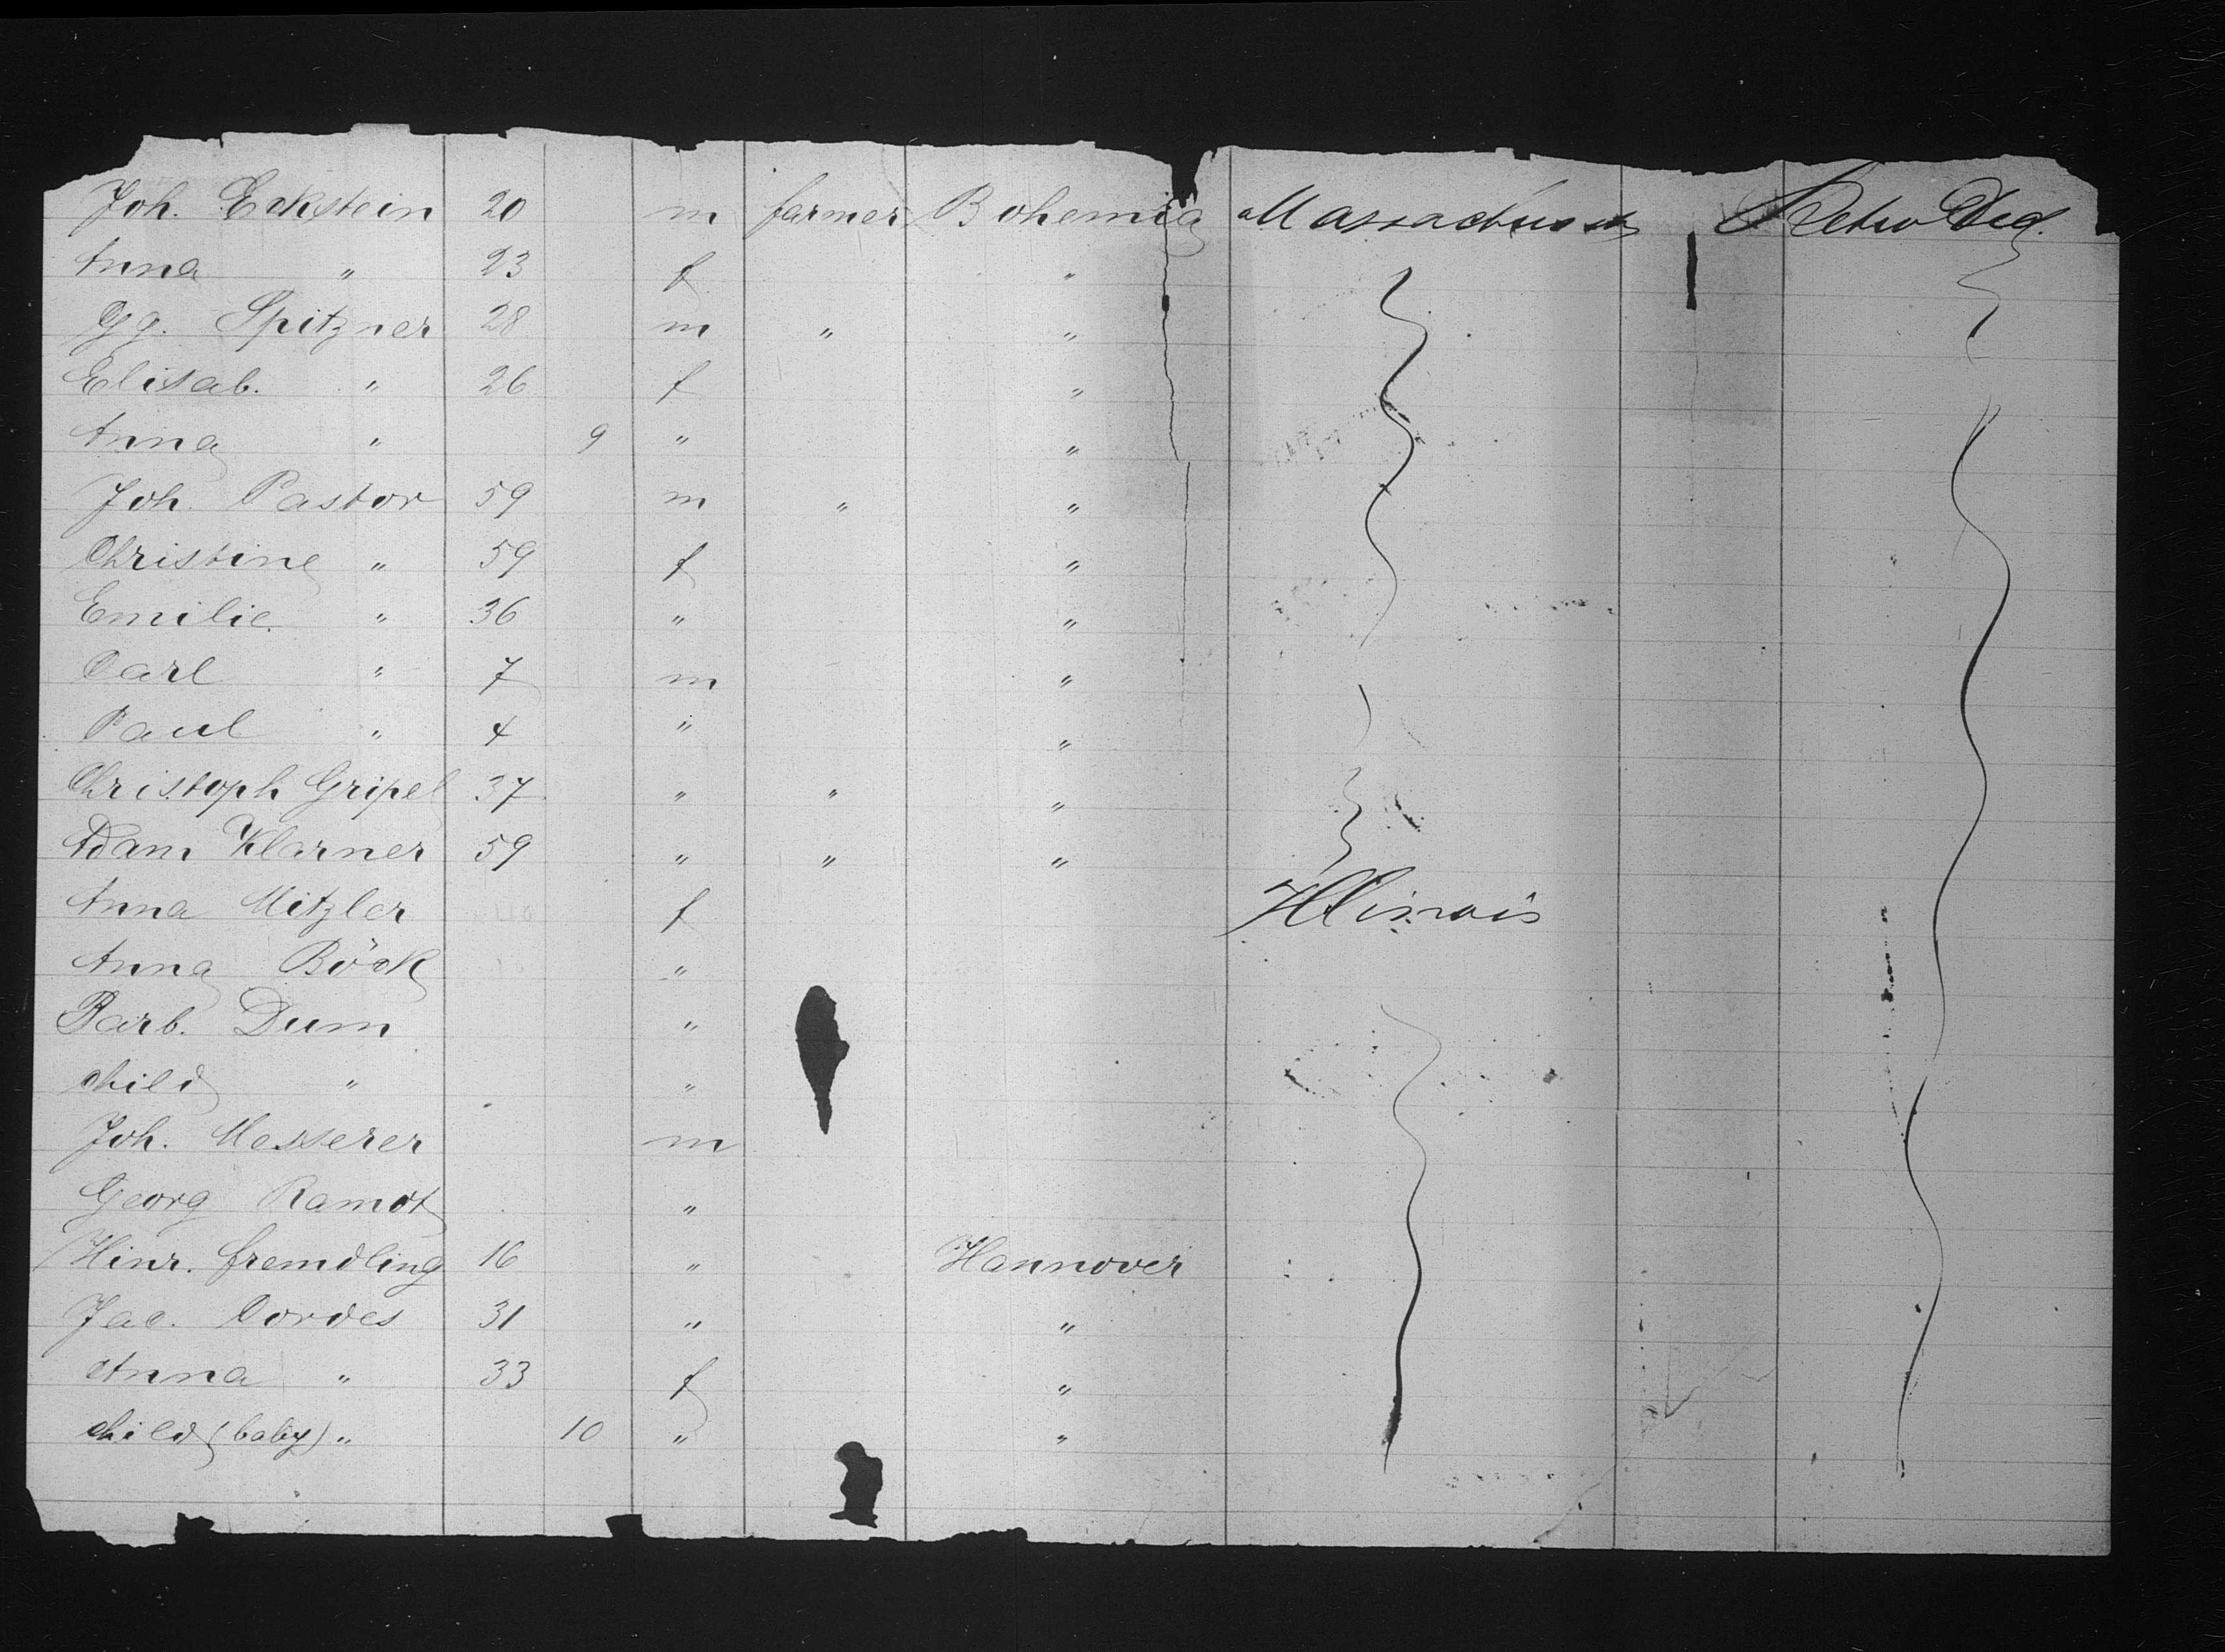 Joh. Eckstein 20 m farmer Bohemia Massachusetts
Anna " 23 f "
Gg. Spitzner 28 m " "
Elisab. " 26 f "
Anna " 9 " "
Joh. Pastor 59 m " "
Christine " 59 f "
Emilie " 36 " "
Carl " 7 m "
Paul " 4 " "
Christoph Gripel 37 " " "
Adam Klarner 59 " " "
Anna Mitzler f Illinois
Anna Böck "
Barb. Dum "
child " "
Joh. Messerer m
Georg "
Hinr. Fremdling 16 " Hannover
Jac. Cordes 31 " "
Anna " 33 f "
child (baby) " 10 " "